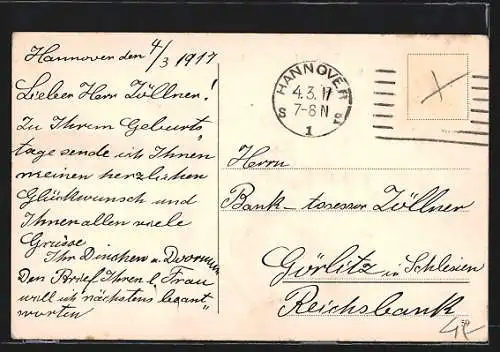 Hannover den 4/3 1917
Lieber Herr Zöllner!
Zu Ihrem Geburts
tage sende ich Ihnen
meinen herzlichen
Glückwunsch und
Ihnen allen viele
Grüsse
Ihr Dinchen u.
Den Brief Ihrer l. Frau
will ich nächstens beant"
worten
HANNOVER
4.3.17
7-8 N
S
1
Herrn
Bank-Assessor Zöllner
Görlitz in Schlesien
Reichsbank